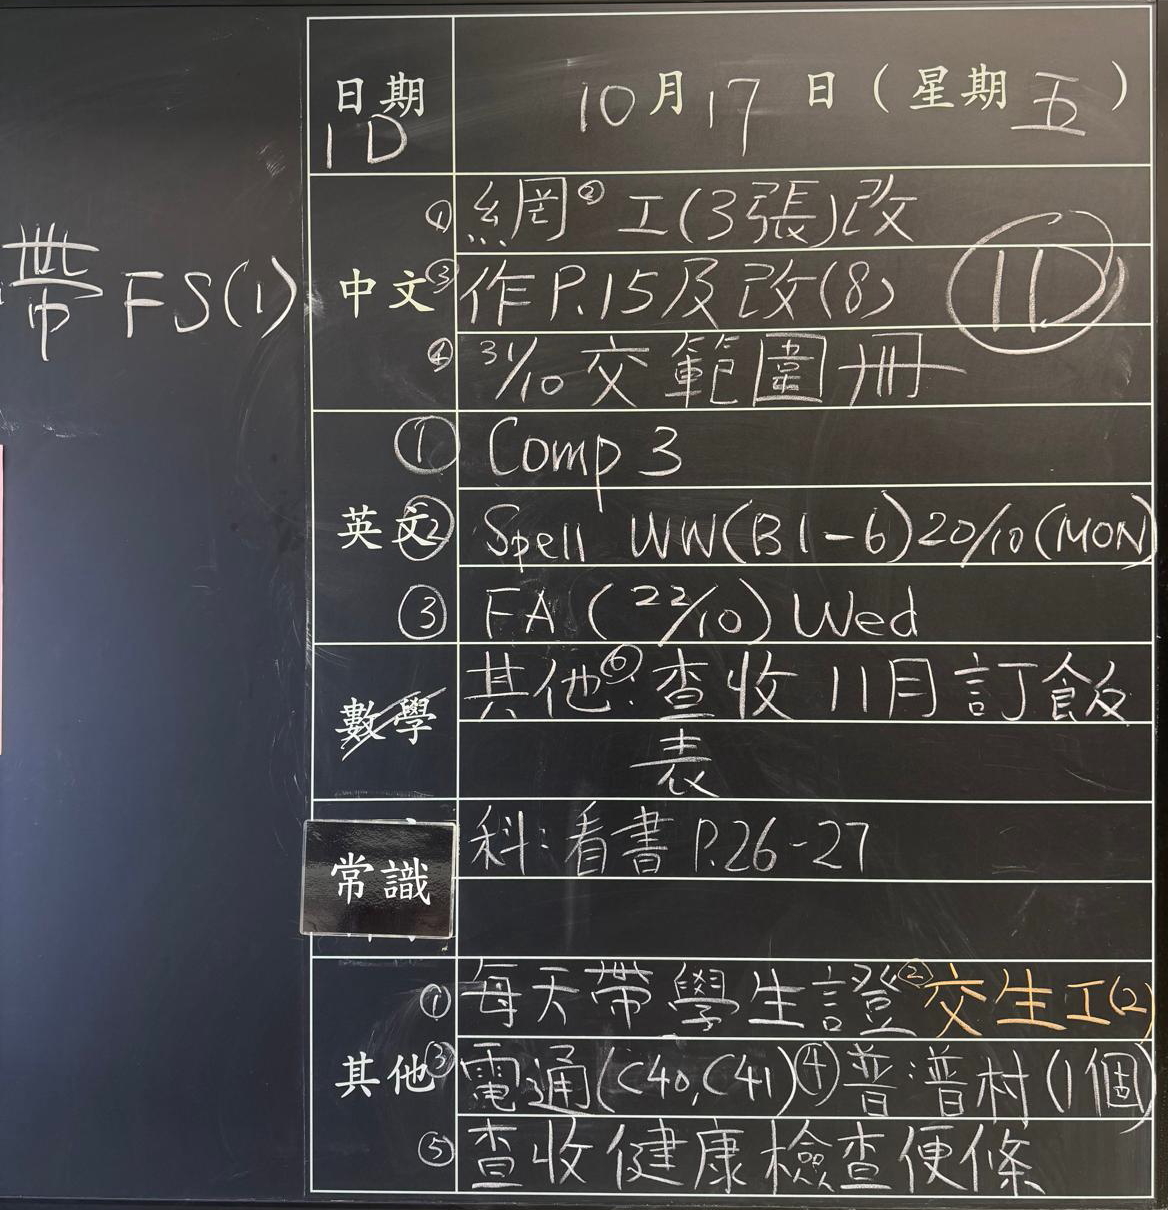 日期 10月17日(星期五)
1D
帶 FS(1)
中文
① 網 ② 工(3張)改
③ 作P.15及改(8)
11
④ 31/10 交範圍冊
英文
① Comp 3
② Spell WW(B1-6)20/10(MON)
③ FA (22/10) Wed
數學
其他⑥:查收11月訂飯
表
常識
科:看書P.26-27
其他
① 每天帶學生證 ②交生工(2)
③ 電通(C40,C41) ④普:普村(1個)
⑤ 查收健康檢查便條